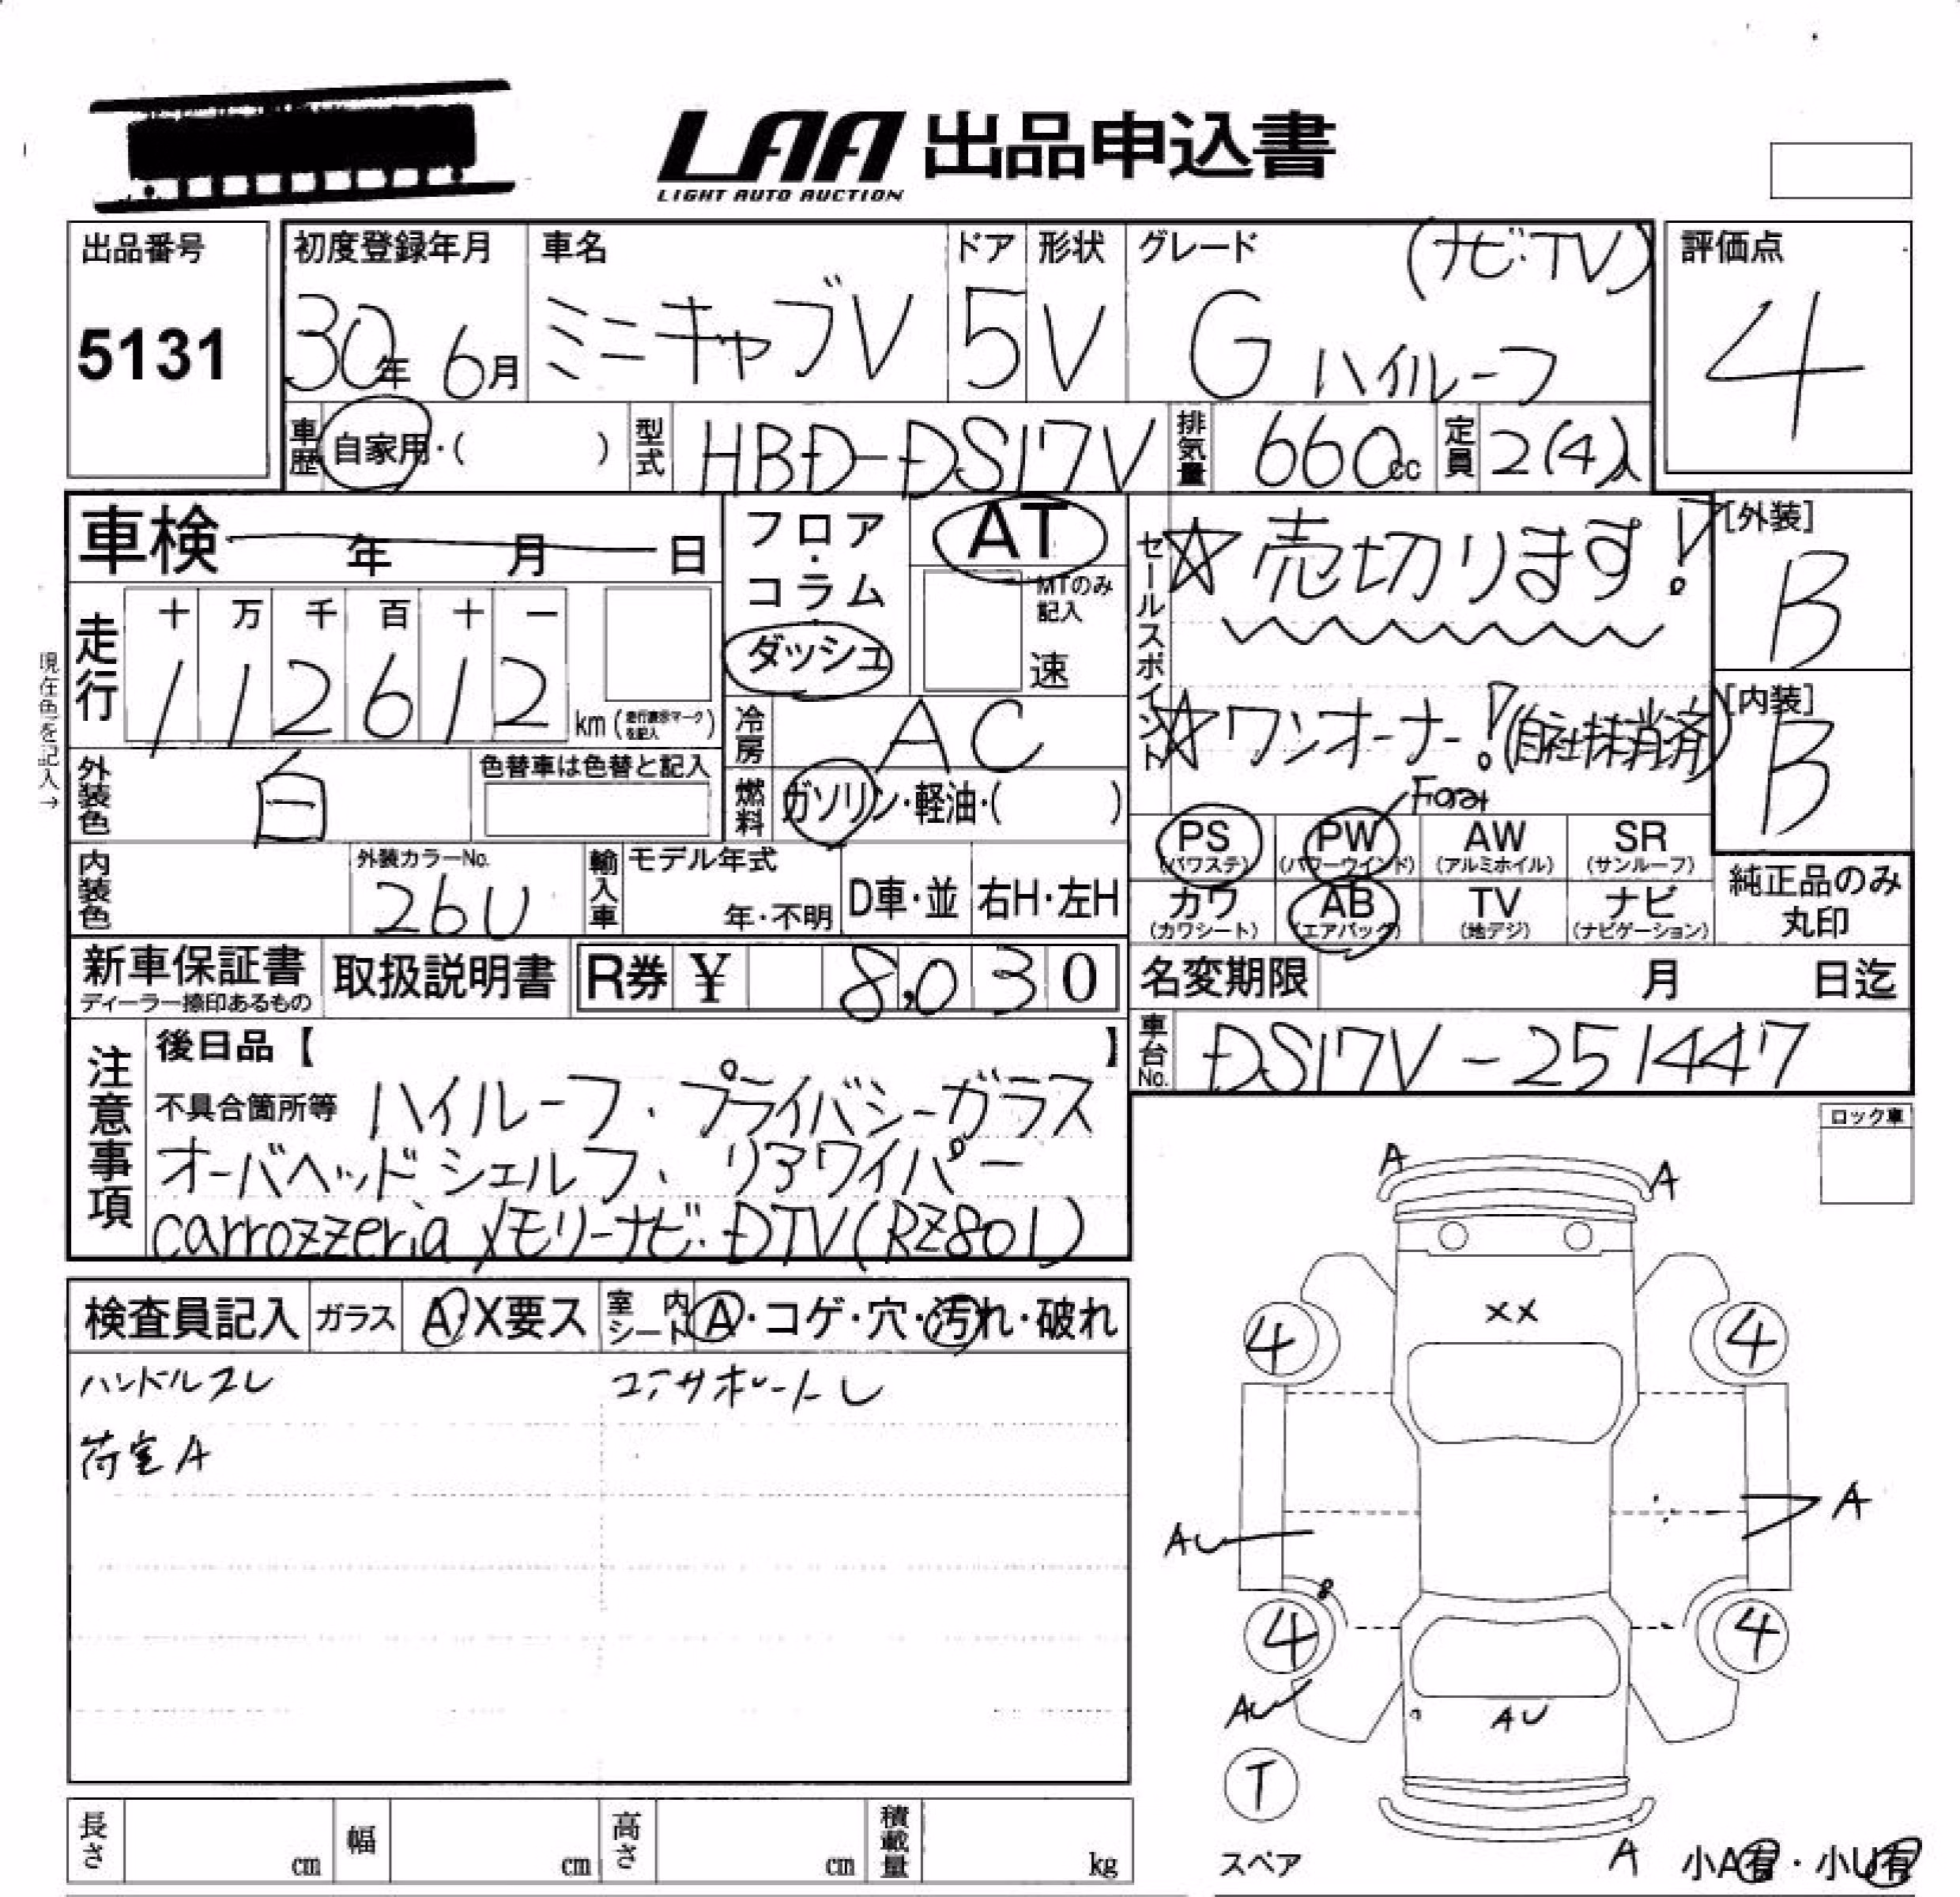 LAA 出品申込書
LIGHT AUTO AUCTION
出品番号
5131
初度登録年月
30年 6月
車名
ミニキャブV
ドア
5
形状
V
グレード (ナビ・TV)
G ハイルーフ
評価点
4
車歴 自家用・( )
型式 HBD-DS17V
排気量 660cc
定員 2(4)人
車検 年 月 日
走行 十 万 千 百 十 一
112612 km (走行表示マークを記入)
現在色を記入→
外装色 白
色替車は色替と記入
内装色
外装カラーNo.
26U
輸入車 モデル年式
年・不明
D車・並 右H・左H
フロア・コラム・ダッシュ
AT
MTのみ記入
速
冷房 AC
燃料 ガソリン・軽油・( )
セールスポイント
☆売切ります!
☆ワンオーナー!(自社抹消済)
[外装]
B
[内装]
B
PS (パワステ)
PW (パワーウインド)
AW (アルミホイル)
SR (サンルーフ)
カワ (カワシート)
AB (エアバッグ)
TV (地デジ)
ナビ (ナビゲーション)
純正品のみ丸印
新車保証書
ディーラー捺印あるもの
取扱説明書
R券 ¥ 8,030
名変期限 月 日迄
車台No. DS17V-251447
注意事項
後日品【 】
不具合箇所等 ハイルーフ、プライバシーガラス
オーバヘッドシェルフ、リアワイパー
carrozzeria メモリーナビ・DTV(RZ801)
ロック車
検査員記入 ガラス A・X要ス 室内シート A・コゲ・穴・汚れ・破れ
ハンドルスレ
コアサポートU
荷室A
A A
XX
4 4
A
AU
4 4
AU
AU
T
スペア
A
小A有・小U有
長さ cm 幅 cm 高さ cm 積載量 kg